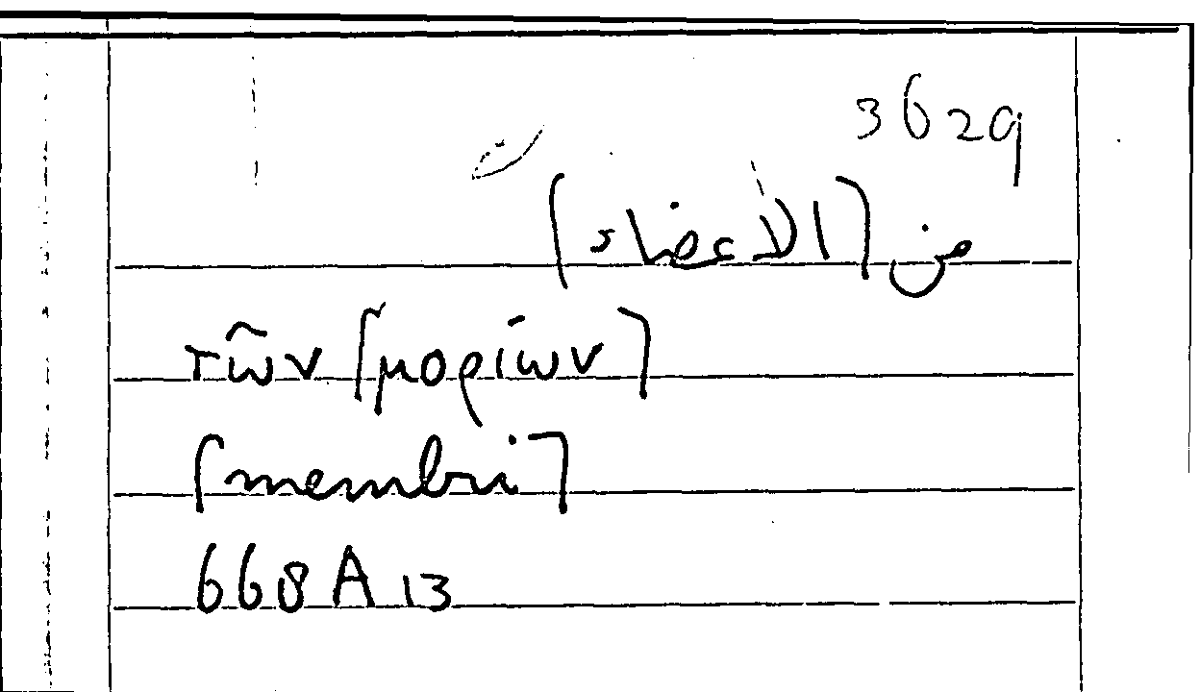 3629
من [الاعضاء]
τῶν [μορίων]
[membri]
668A13